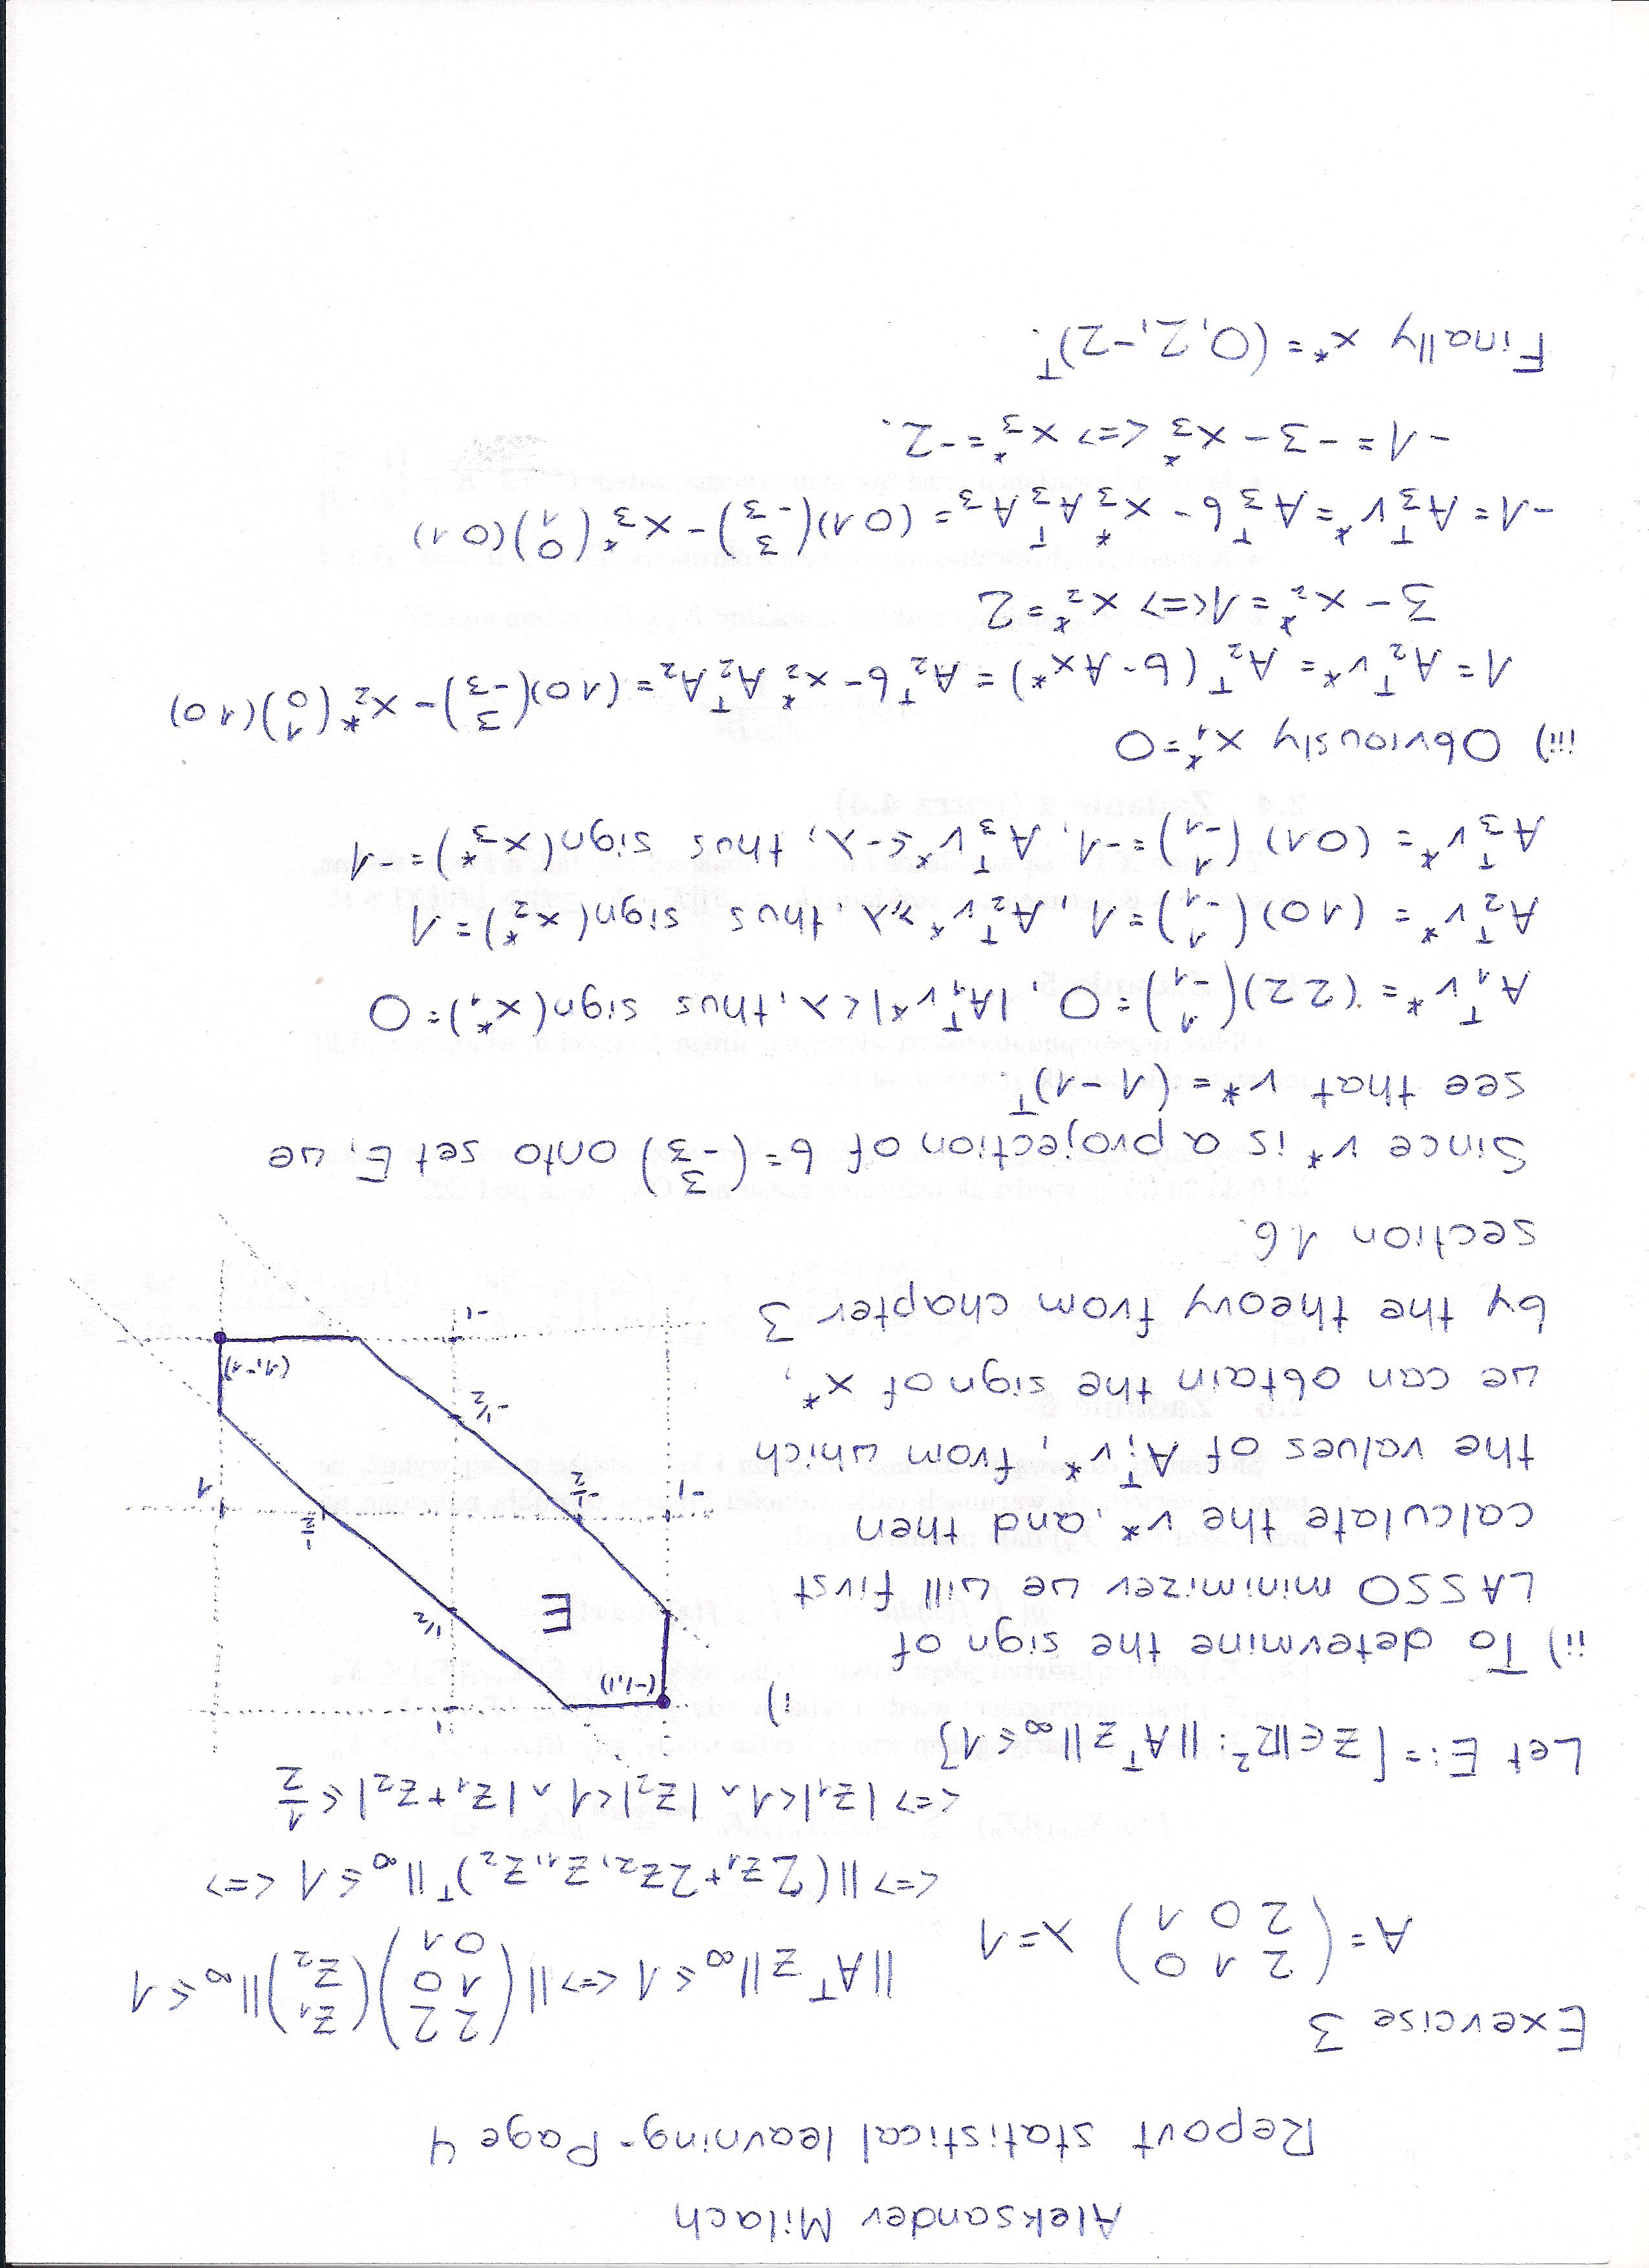 Aleksander Milach
Report statistical learning - Page 4
Exercise 3
A = ( 2 1 0 ; 2 0 1 ) λ = 1
||Aᵀ z||∞ ≤ 1 <=> || ( 2 2 ; 1 0 ; 0 1 ) ( z₁ ; z₂ ) ||∞ ≤ 1
<=> ||(2z₁ + 2z₂, z₁, z₂)ᵀ||∞ ≤ 1 <=>
<=> |z₁| < 1 ∧ |z₂| < 1 ∧ |z₁ + z₂| ≤ 1/2
Let E := { z ∈ ℝ² : ||Aᵀ z||∞ ≤ 1 }
i)
(-1,1)
1
E
1/2
1/2
-1
-1/2
1
-1/2
(1,-1)
-1
ii) To determine the sign of
LASSO minimizer we will first
calculate the v*, and then
the values of Aᵢᵀv*, from which
we can obtain the sign of x*,
by the theory from chapter 3
section 1.6.
Since v* is a projection of b = ( 3 ; -3 ) onto set E, we
see that v* = (1 -1)ᵀ.
A₁ᵀv* = (2 2)( 1 ; -1 ) = 0, |A₁ᵀv*| < λ, thus sign(x₁*) = 0
A₂ᵀv* = (1 0)( 1 ; -1 ) = 1, A₂ᵀv* ≥ λ, thus sign(x₂*) = 1
A₃ᵀv* = (0 1)( 1 ; -1 ) = -1, A₃ᵀv* ≤ -λ, thus sign(x₃*) = -1
iii) Obviously x₁* = 0
1 = A₂ᵀv* = A₂ᵀ(b - Ax*) = A₂ᵀb - x₂* A₂ᵀA₂ = (1 0)( 3 ; -3 ) - x₂* ( 1 ; 0 )(1 0)
3 - x₂* = 1 <=> x₂* = 2
-1 = A₃ᵀv* = A₃ᵀb - x₃* A₃ᵀA₃ = (0 1)( 3 ; -3 ) - x₃* ( 0 ; 1 )(0 1)
-1 = -3 - x₃* <=> x₃* = -2.
Finally x* = (0, 2, -2)ᵀ.